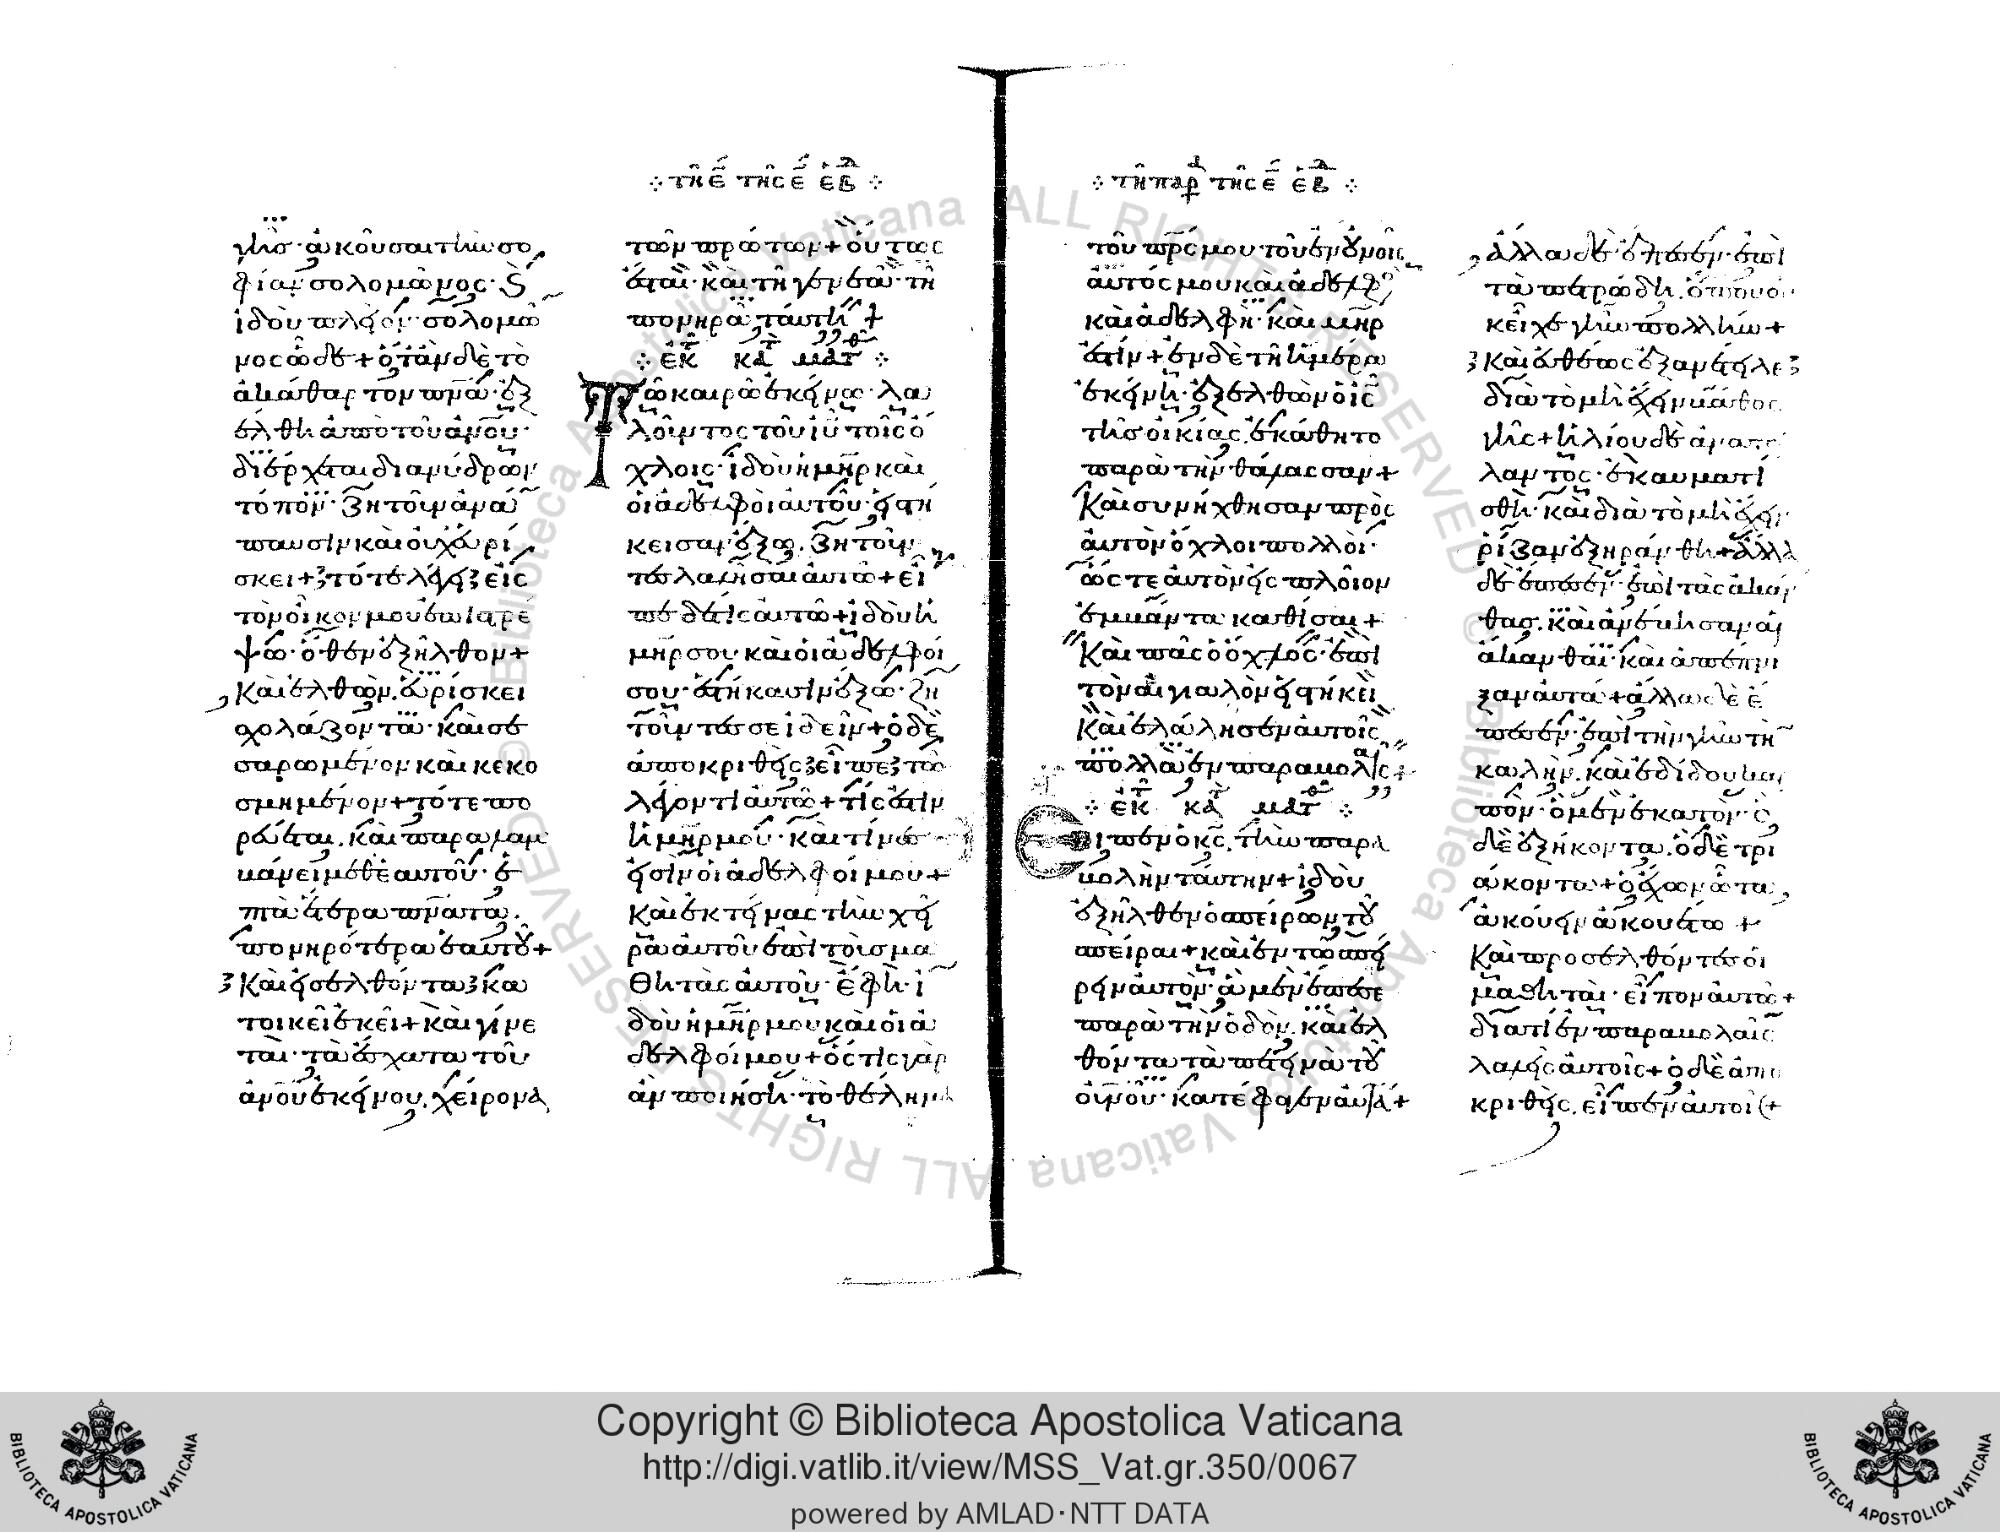 τῇ ε̄ τῆς ε̄ ἑβδ
γῆς· ἀκοῦσαι τὴν σο
φίαν σολομῶνος· καὶ
ἰδοὺ πλεῖον σολομῶ
νος ὧδε + ὅταν δὲ τὸ
ἀκάθαρτον πνᾶ· ἐξ
έλθη ἀπὸ τοῦ ἀνου·
διέρχεται δι ἀνύδρων
τόπων· ζητοῦν ἀνά
παυσιν καὶ οὐχ εὑρί
σκει + τότε λέγει εἰς
τὸν οἶκον μου ἐπιστρέ
ψω· ὅθεν ἐξῆλθον +
Καὶ ἐλθὼν. εὑρίσκει
σχολάζοντα· καὶ σε
σαρωμένον καὶ κεκο
σμημένον + τότε πο
ρεύεται. καὶ παραλαμ
βάνει μεθ ἑαυτοῦ· ἑ
πτὰ ἕτερα πνατα.
πονηρότερα ἑαυτοῦ +
Καὶ εἰσελθόντα κα
τοικεῖ ἐκεῖ + καὶ γίνε
ται· τὰ ἔσχατα τοῦ
ἀνου ἐκείνου. χείρονα
τῶν πρώτων + οὕτως
ἔσται· καὶ τῇ γενεᾷ· τῇ
πονηρᾷ ταύτη +
ἐκ τ κατ ματθ
Τῶ καιρῶ ἐκείνω· λα
λοῦντος τοῦ ιυ τοῖς ὄ
χλοις· ἰδοὺ ἡ μηρ καὶ
οἱ ἀδελφοὶ αὐτοῦ· εἱστή
κεισαν ἔξω. ζητοῦν
τες λαλῆσαι αὐτῶ + εἶ
πε δέ τις αὐτῶ + ἰδοὺ ἡ
μηρ σου καὶ οἱ ἀδελφοί
σου· ἑστήκασιν ἔξω· ζη
τοῦντές σε ἰδεῖν + ὁ δὲ
ἀποκριθεὶς εἶπε τῶ
λέγοντι αὐτῶ + τίς ἐστιν
ἡ μηρ μου· καὶ τίνες
εἰσὶν οἱ ἀδελφοί μου +
Καὶ ἐκτείνας τὴν χεῖ
ρα αὐτοῦ ἐπὶ τοὺς μα
θητὰς αὐτοῦ· ἔφη· ἰ
δοὺ ἡ μηρ μου καὶ οἱ ἀ
δελφοί μου + ὅς τις γὰρ
ἂν ποιήση· τὸ θέλημα
τῇ παρ τῆς ε̄ ἑβδ
τοῦ πρς μου τοῦ ἐν οὐνοις
αὐτός μου καὶ ἀδελφὸς
καὶ ἀδελφὴ· καὶ μηρ
ἐστίν + ἐν δὲ τῇ ἡμέρα
ἐκείνη· ἐξελθὼν ὁ ις
τῆς οἰκίας. ἐκάθητο
παρὰ τὴν θάλασσαν +
Καὶ συνήχθησαν πρὸς
αὐτὸν ὄχλοι πολλοὶ·
ὥς τε αὐτὸν εἰς πλοῖον
ἐμβάντα καθίσαι +
Καὶ πᾶς ὁ ὄχλος· ἐπὶ
τὸν αἰγιαλὸν εἱστήκει
Καὶ ἐλάλησεν αὐτοῖς
πολλὰ ἐν παραβολαῖς +
ἐκ τ κατ ματθ
Εἶπεν ὁ κς. τὴν παρα
βολὴν ταύτην + ἰδοὺ
ἐξῆλθεν ὁ σπείρων τοῦ
σπείραι + καὶ ἐν τῶ σπεί
ρειν αὐτὸν· ἃ μὲν ἔπεσε
παρὰ τὴν ὁδὸν. καὶ ἐλ
θόντα τὰ πετεινὰ τοῦ
οὐνοῦ· κατέφαγεν αὐτά +
ἄλλα δὲ ἔπεσεν· ἐπὶ
τὰ πετρώδη. ὅπου οὐ
κ εἶχε γῆν πολλὴν +
Καὶ εὐθέως ἐξανέτειλε
διὰ τὸ μὴ ἔχειν βάθος
γῆς + ἡλίου δὲ ἀνατεί
λαντος· ἐκαυματί
σθη· καὶ διὰ τὸ μὴ ἔχειν
ῥίζαν ἐξηράνθη + ἄλλα
δὲ ἔπεσεν· ἐπὶ τὰς ἀκάν
θας. καὶ ἀνέβησαν αἱ
ἄκανθαι· καὶ ἀπέπνι
ξαν αὐτά + ἄλλα δὲ ἔ
πεσεν· ἐπὶ τὴν γῆν τὴν
καλὴν. καὶ ἐδίδου καρ
πὸν· ὁ μὲν ἑκατὸν· ὁ
δὲ ἑξήκοντα. ὁ δὲ τρι
άκοντα + ὁ ἔχων ὦτα
ἀκούειν ἀκουέτω +
Καὶ προσελθόντες οἱ
μαθηταὶ· εἶπον αὐτῶ +
διατί ἐν παραβολαῖς
λαλεῖς αὐτοῖς + ὁ δὲ ἀπο
κριθεὶς. εἶπεν αὐτοῖς +
Copyright © Biblioteca Apostolica Vaticana
http://digi.vatlib.it/view/MSS_Vat.gr.350/0067
powered by AMLAD·NTT DATA
BIBLIOTECA APOSTOLICA VATICANA
BIBLIOTECA APOSTOLICA VATICANA
© Biblioteca Apostolica Vaticana ALL RIGHTS RESERVED © Biblioteca Apostolica Vaticana ALL RIGHTS RESERVED